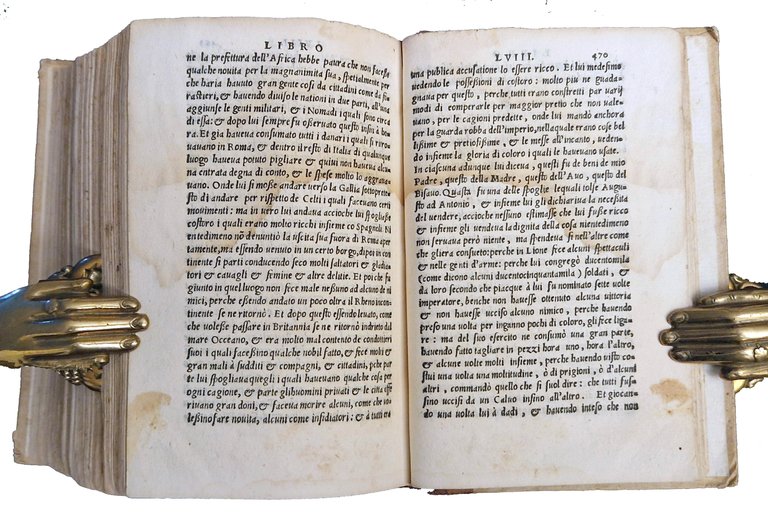 LIBRO
ne la prefettura dell'Africa hebbe paura che non facesse
qualche novita per la magnanimita sua, spetialmente per
che haria hauuto gran gente cosi da cittadini come da fo
rastieri, & hauendo diuiso le nationi in due parti, all'una
aggiunse le genti militari, & i Nomadi i quali sono circa
di essa: & dopo lui sempre fu osseruato questo insino a hora
ra. Et gia haueua consumato tutti i danari i quali si ritro
uauano in Roma, & dentro il resto di Italia di qualunque
luogo haueua potuto pigliare & quiui non haueua alcu
na entrata degna di conto, & le spese molto lo aggraua
uano. Onde lui si mosse andare uerso la Gallia sottoprete
sto di andar per rispetto de Celti i quali faceuano certi
mouimenti: ma in uero lui andaua accioche lui spogliasse
costoro i quali erano molto ricchi insieme co Spagnoli. Ni
entedimeno nō denuntiò la uscita sua fuora di Roma aper
tamente, ma essendo uenuto in un certo borgo, dipoi in con
tinente si parti conducendo seco molti saltatori & gladia
tori & cauagli & femine & altre delitie. Et poiche fu
giunto in quel luogo non fice male nessuno ad alcuno de ni
mici, perche essendo andato un poco oltra il Rheno incon
tinente se ne ritornò. Et dopo questo essendo leuato, come
che uolesse passare in Britannia se ne ritornò indrieto dal
mare Oceano, & era molto mal contento de condottieri
suoi i quali facessino qualche nobil fatto, & fice molti &
gran mali à sudditi & compagni, & cittadini, pche par
te lui spogliaua quegli i quali haueuano qualche cosa per
ogni cagione, & parte gli huomini priuati & le citta offe
riuano gran doni, & faceua morire alcuni, come che uo
lessino fare nouita, alcuni come insidiatori: & à tutti era
LVIII. 470
una publica accusatione lo essere ricco. Et lui medesimo
uedendo le possessioni di costoro: molto piu ne guada
gnaua per questo, perche tutti erano constretti par uarij
modi di comperarle per maggior pretio che non uale
uano, per le cagioni predette, onde lui mandò anchora
per la guarda robba dell'imperio, nella quale erano cose bel
lissime & pretiosissime, & le messe all'incanto, ueden
do insieme la gloria di coloro i quali le haueuano usate.
In ciascuna adunque lui diceua, questi fu de beni di mio
Padre, questo della Madre, questo dell'Auo, questo del
Bisauo. Questa fu una delle spoglie lequali tolse Augu
sto ad Antonio, & insieme lui gli dichiariua la necessità
del uendere, accioche nessuno estimasse che lui fusse ricco
& insieme gli uendeua la dignita della cosa nientedimeno
non seruaua però niente, ma spendeua si nell'altre come
che gliera consueto: perche in Lione fice alcuni spettaculi
& nelle genti d'arme: perche lui congregò ducentomila
(come dicono alcuni ducentocinquantamila) soldati, &
da loro secondo che piacque à lui fu nominato sette uolte
imperatore, benche non hauesse ottenuto alcuna uittoria
& non hauesse ucciso alcuno nimico, perche hauendo
preso una uolta per ingunno pochi di coloro, gli fice liga
re: ma del suo esercito ne consumò una gran parte,
hauendo fatto tagliare in pezzi hora uno, hora l'altro,
& alcune uolte molti insieme, perche hauendo uisto co
stui una uolta una moltitudine, ò di prigioni, ò d'alcuni
altri, commandò quello che si suol dire: che tutti fus
sino uccisi da un Caluo insino all'altro. Et giocan
do una uolta lui à dadi, & hauendo inteso che non